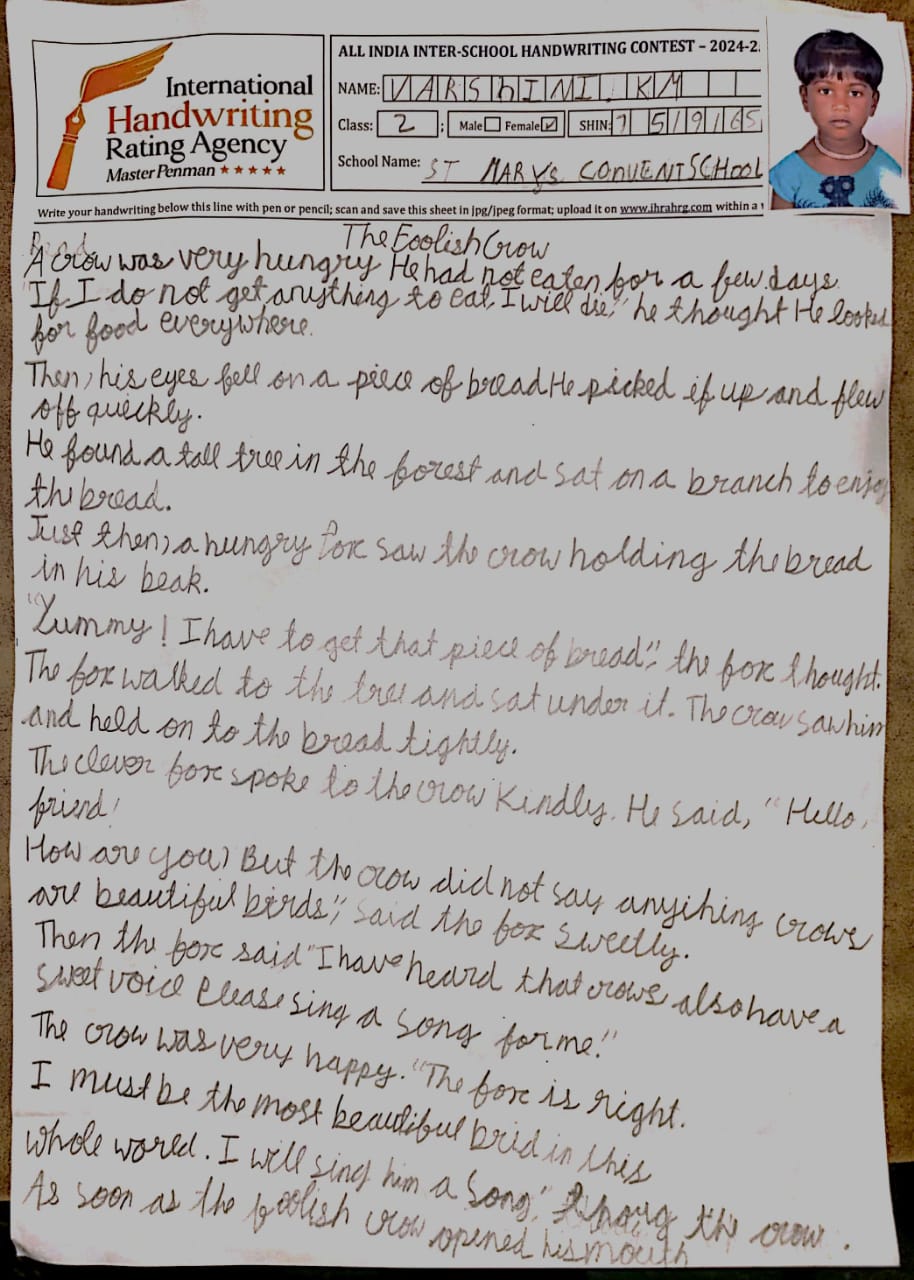 International
Handwriting
Rating Agency
Master Penman
ALL INDIA INTER-SCHOOL HANDWRITING CONTEST – 2024-2
NAME: VARShINI.KM
Class: 2 ; Male Female ✓ SHIN: 7 5 9 1 6 5
School Name: ST MARYs CONVENT SCHOOL
Write your handwriting below this line with pen or pencil; scan and save this sheet in jpg/jpeg format; upload it on www.ihrahrg.com within a
Read
The Foolish Crow
A crow was very hungry He had not eaten for a few days.
"If I do not get anything to eat, I will die," he thought He looked
for food everywhere.
Then, his eyes fell on a piece of bread He picked if up and flew
off quickly.
He found a tall tree in the forest and sat on a branch to enjoy
the bread.
Just then, a hungry fox saw the crow holding the bread
in his beak.
"Yummy! I have to get that piece of bread", the fox thought.
The fox walked to the tree and sat under it. The crow saw him
and held on to the bread tightly.
The clever fox spoke to the crow Kindly. He said, "Hello,
friend!
How are you) But the crow did not say anything crows
are beautiful birds", said the fox sweetly.
Then the fox said "I have heard that crows also have a
sweet voice Please sing a song for me."
The crow was very happy. "The fox is right.
I must be the most beautiful brid in this
whole world. I will sing him a song," thoug the crow.
As soon as the foolish crow opened his mouth